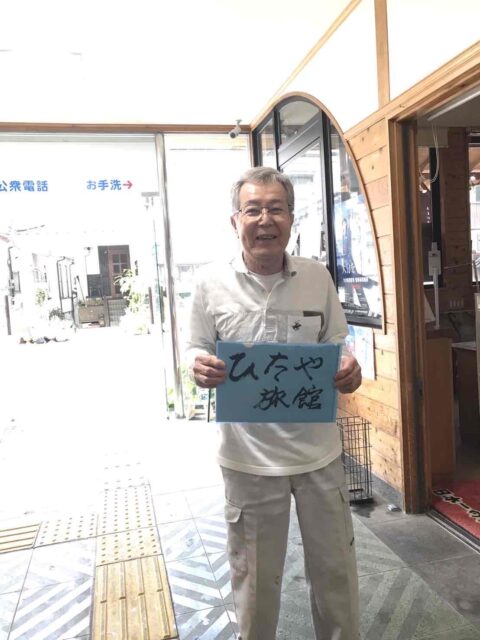 公衆電話 お手洗→
ひたや
旅館